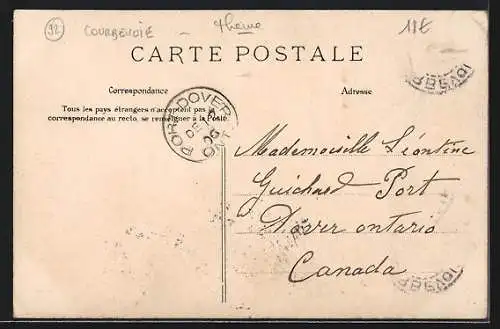 92 COURBEVOIE - theme 18€
CARTE POSTALE
Correspondance Adresse
Tous les pays étrangers n'acceptent pas la
correspondance au recto, se renseigner à la Poste.
PORT DOVER
ONT
Mademoiselle Léontine
Guichard Port
Dover ontario
Canada